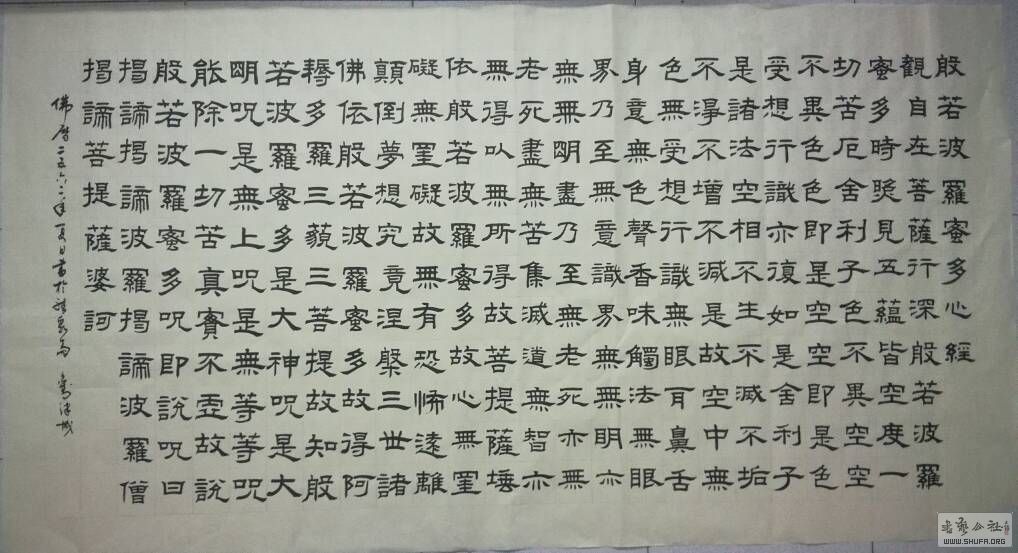 般若波羅蜜多心經
觀自在菩薩行深般若波羅
蜜多時照見五蘊皆空度一
切苦厄舍利子色不異空空
不異色色即是空空即是色
受想行識亦復如是舍利子
是諸法空相不生不滅不垢
不淨不增不減是故空中無
色無受想行識無眼耳鼻舌
身意無色聲香味觸法無眼
界乃至無意識界無無明亦
無無明盡乃至無老死亦無
老死盡無苦集滅道無智亦
無得以無所得故菩提薩埵
依般若波羅蜜多故心無罣
礙無罣礙故無有恐怖遠離
顛倒夢想究竟涅槃三世諸
佛依般若波羅蜜多故得阿
耨多羅三藐三菩提故知般
若波羅蜜多是大神咒是大
明咒是無上咒是無等等咒
能除一切苦真實不虛故說
般若波羅蜜多咒即說咒曰
揭諦揭諦波羅揭諦波羅僧
揭諦菩提薩婆訶
佛曆二五六二年夏日書於
WWW.SHUFA.ORG